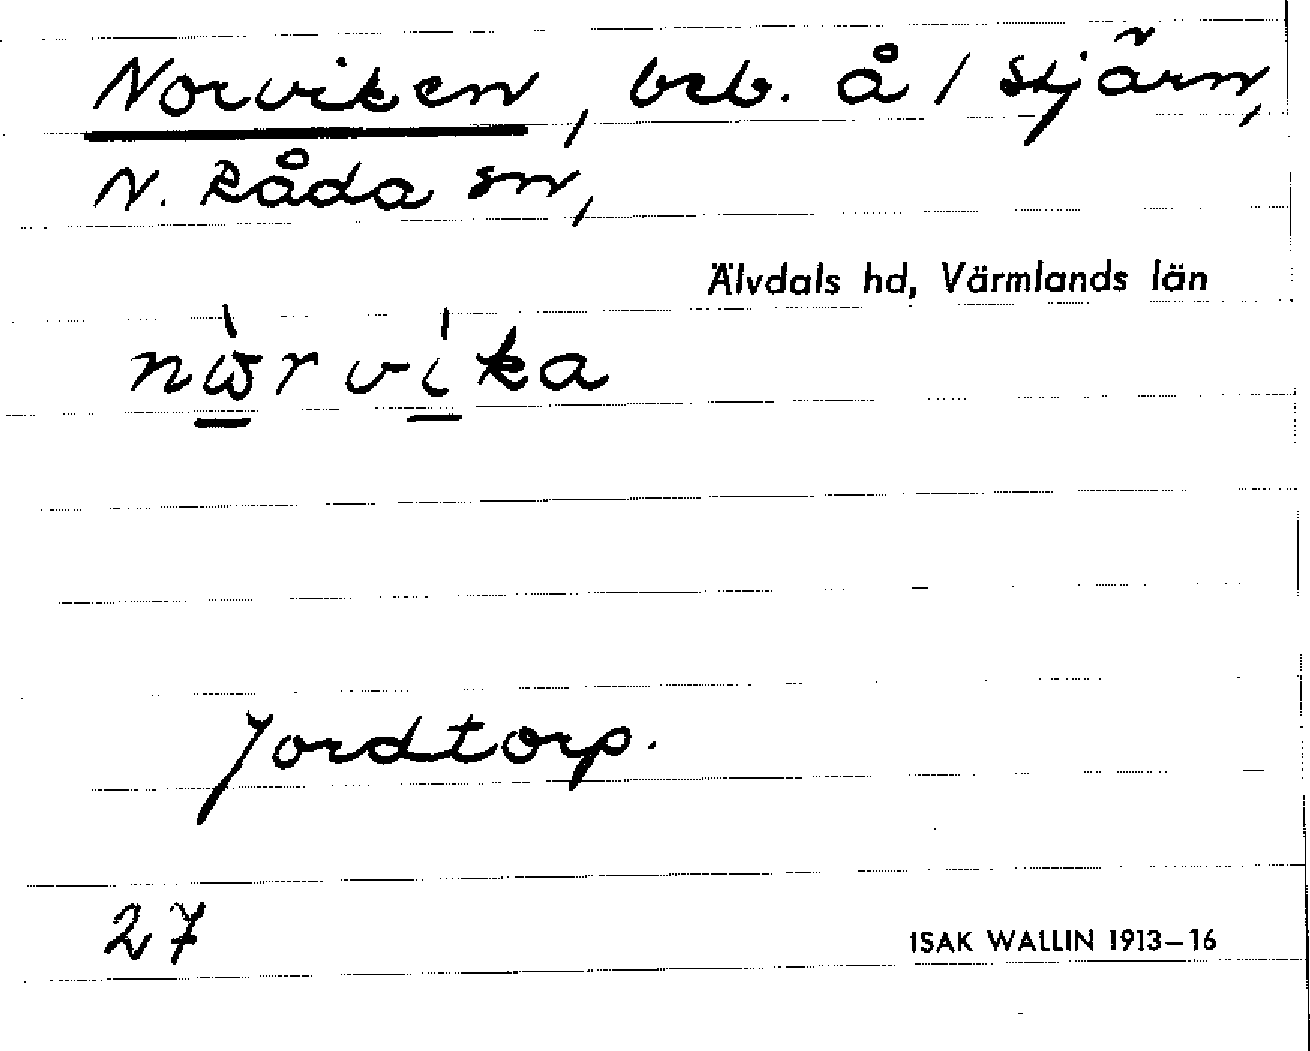 Norviken, beb. å / Stjärn,
N. Råda sn,
Älvdals hd, Värmlands län
vika
Jordtorp.
27
ISAK WALLIN 1913–16